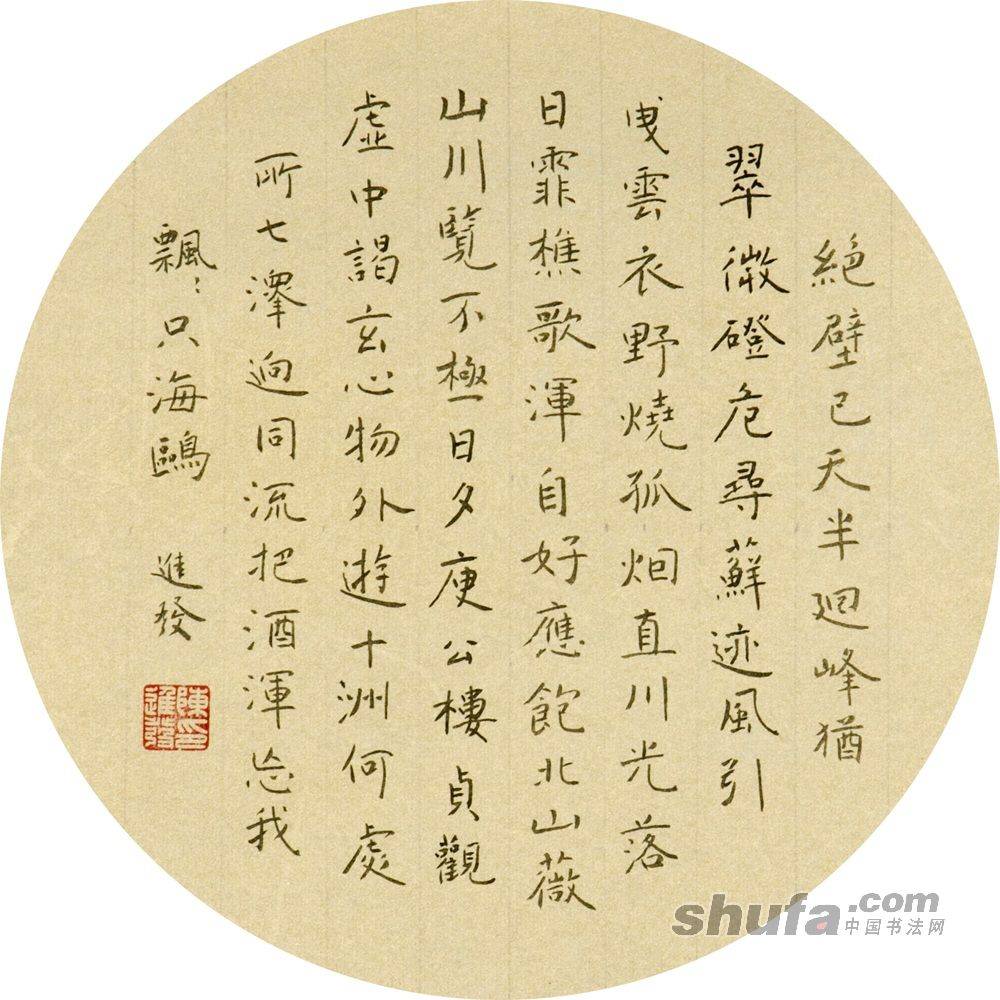 絕壁已天半迴峰猶
翠微磴危尋蘚迹風引
曳雲衣野燒孤烟直川光落
日霏樵歌渾自好應飽北山薇
山川覽不極日夕庾公樓貞觀
虛中謁玄心物外遊十洲何處
所七澤迥同流把酒渾忘我
飄:只海鷗 進發
陳印進發
shufa.com
中国书法网